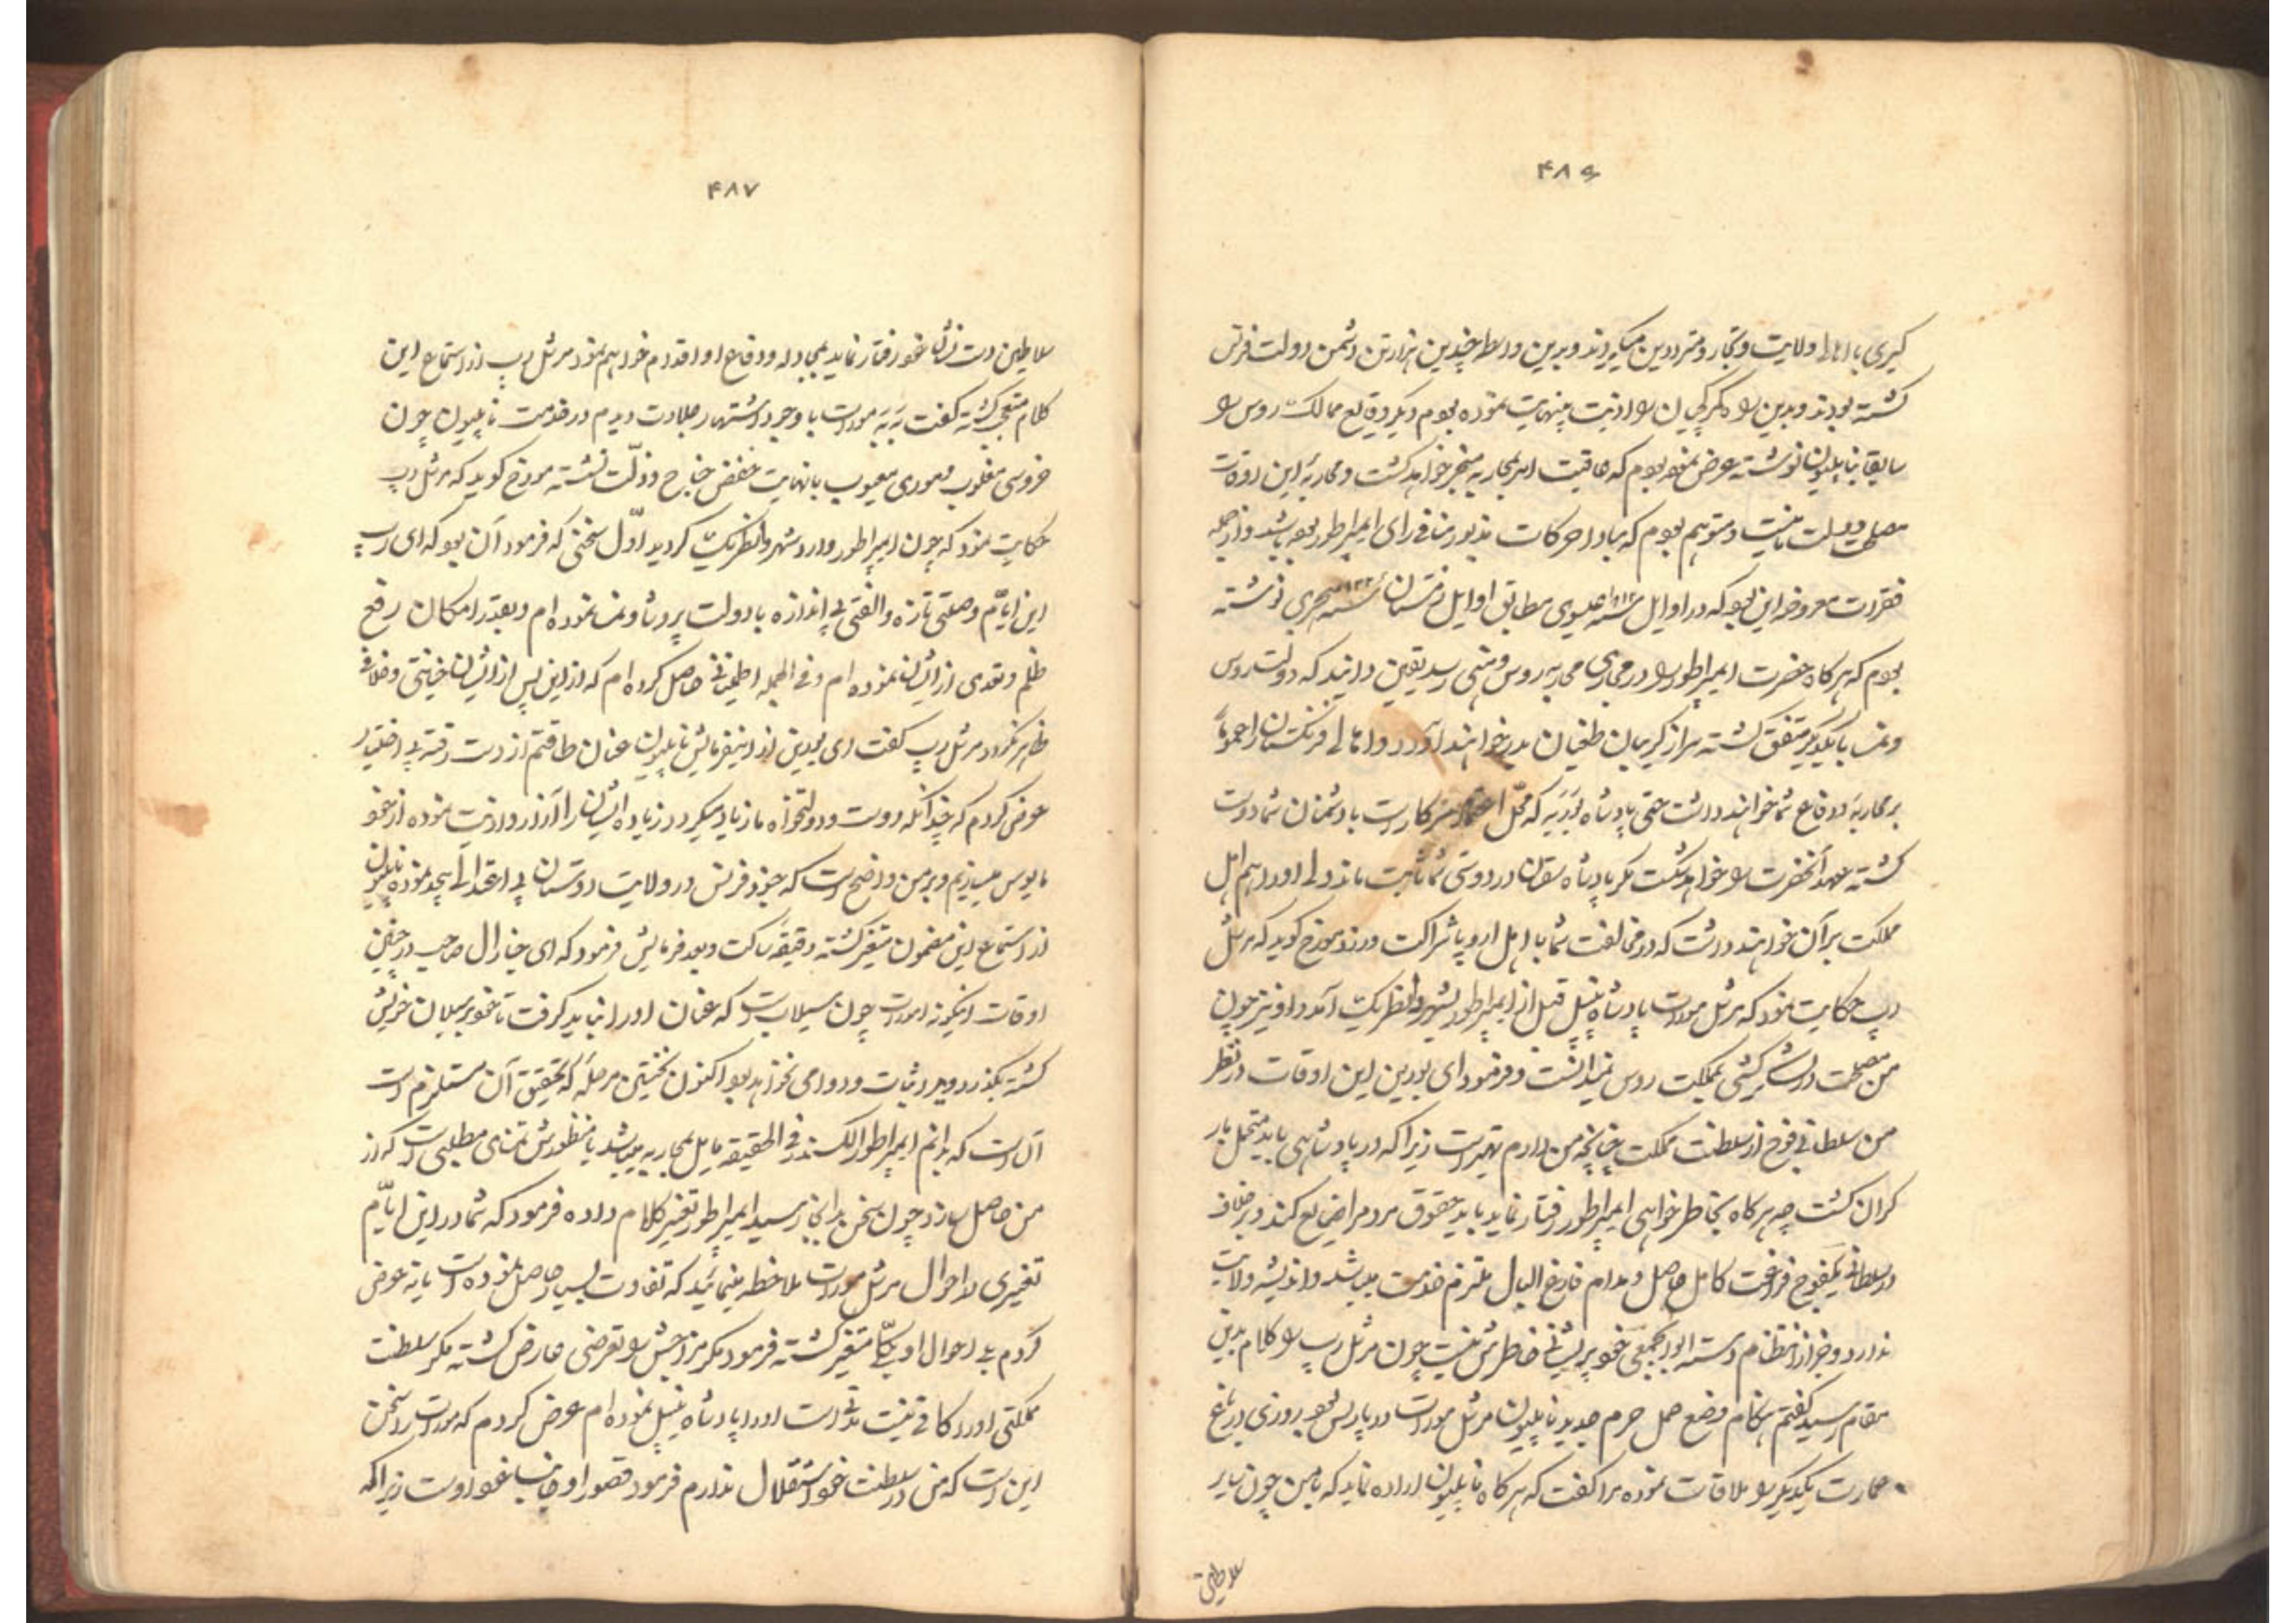 ۴۸۶
کیری باهالی ولایت و تجار و مترددین میکردند و بدین واسطه چندین هزار تن دشمن دولت فرنس
کشته بودند و بدین کمرکچیان را اذیت بینهایت نموده بودم دیگر وقایع ممالک روس را
سابقا بناپلیون نوشته عرض نموده بودم که عاقبت امر بمحاربه منجر خواهد کشت و محاربهٔ این اوقات
مصلحت دولت ما نیست و متوهم بودم که مبادا حرکات مذبور منافی رای ایمپراطور بوده باشد و از جمله
فقرات معروضه این بود که در اوایل سنه ۱۸۱۲ عیسوی مطابق اوایل زمستان سنه هجری نوشته
بودم که هرکاه حضرت ایمپراطور را در مجاری محاربه روس وهنی رسد یقین دانید که دولت روس
و نمسا با یکدیکر متفق کشته سر از کریبان طغیان بدر خواهند آورد و اهالی فرنکستان را عموماً
بر محاربه و دفاع شما خواهند داشت حتی پادشاه که محل اعتماد سرکار است با دشمنان شما دوست
کشته عهد آنحضرت را خواهد شکست مکر پادشاه در دوستی شما ثابت ماند ولی او را هم اهل
مملکت بر آن خواهند داشت که در مخالفت شما با اهل اروپا شراکت ورزد مورخ کوید که مرشل
رپ حکایت نمود که مرشل مورات پادشاه نیپل قبل از ایمپراطور بشهر آمد و او نیز چون
من مصلحت در لشکرکشی بمملکت روس نمیدانست و فرمود ای بورین این اوقات در نظر
من سلطانی فوج از سلطنت مملکت چنانچه من دارم بهتر است زیرا که در پادشاهی باید متحمل بار
کران کشت چه هرکاه بخاطر خواهی ایمپراطور رفتار نماید باید حقوق مردم را ضایع کند و برخلاف
در سلطانی یکفوج فراغت کامل حاصل و مدام فارغ البال ملتزم خدمت میباشد و اندیشه ولایت
ندارد و جز از انتظام دسته ابواب جمعی خود پریشانی خاطرش نیست چون مرشل رپ را کلام بدین
مقام رسید کفتم هنکام وضع حمل حرم جدید ناپلیون مرشل مورات در پاریس بود روزی در باغ
عمارت یکدیکر را ملاقات نموده مرا کفت که هرکاه ناپلیون اراده نماید که با من چون سایر
سلاطین
۴۸۷
سلاطین دست نشان خود رفتار نماید بمجادله و دفاع او اقدام خواهم نمود مرشل رپ از استماع این
کلام متعجب کشته کفت به به مورات با وجود اشتهار جلادت دیدم در خدمت ناپلیون چون
خروسی مغلوب و موری معیوب بانهایت خفض جناح و ذلت نشسته مورخ کوید که مرشل رپ
حکایت نمود که چون ایمپراطور وارد شهر کردید اوّل سخنی که فرمود آن بود که ای رپ
این ایّام وصلتی تازه و الفتی بی اندازه با دولت پروشا و نمسا نموده ام و بقدر امکان رفع
ظلم و تعدی از ایشان نموده ام و فی الجمله اطمینانی حاصل کرده ام که از این پس از ایشان خیانتی و خلافی
ظاهر نکردد مرشل رپ کفت ای بورین از این فرمایش ناپلیون عنان طاقتم از دست رفته بی اختیار
عرض کردم که چندانکه دوست و دولتخواه ما زیاد میکردد زیاده ایشان را آزار و اذیت نموده از خود
مایوس میسازیم و بر من واضح است که جنود فرنس در ولایت دوستان بی اعتدالی بیحد نموده ناپلیون
از استماع این مضمون متغیر کشته دقیقه ساکت و بعد فرمایش فرمود که ای جنارال صاحب در چنین
اوقات اینکونه امورات چون سیلاب است که عنان او را نباید کرفت تا خود بر سیلان خویش
کشته بکذرد و دیر ثبات و دوامی نخواهد بود اکنون نخستین مرحله که تحقیق آن مستلزم است
آن است که بدانم ایمپراطور الکسندر فی الحقیقه مایل بمحاربه میباشد یا منظورش تمنای مطلبی است که از
من حاصل سازد چون سخن بدانجا رسید ایمپراطور تغییر کلام داده فرمود که شما در این ایّام
تغییری در احوال مرشل مورات ملاحظه مینمائید که تفاوت بسیار حاصل نموده است یا نه عرض
کردم بلی احوال او بکلّی متغیر کشته فرمود مکر مزاجش را تعرضی عارض کشته مکر سلطنت
مملکتی او را کافی نیست مدتی است او را پادشاه نیپل نموده ام عرض کردم که مورات را سخن
این است که من در سلطنت خود استقلال ندارم فرمود قصور او از جانب خود اوست زیرا که